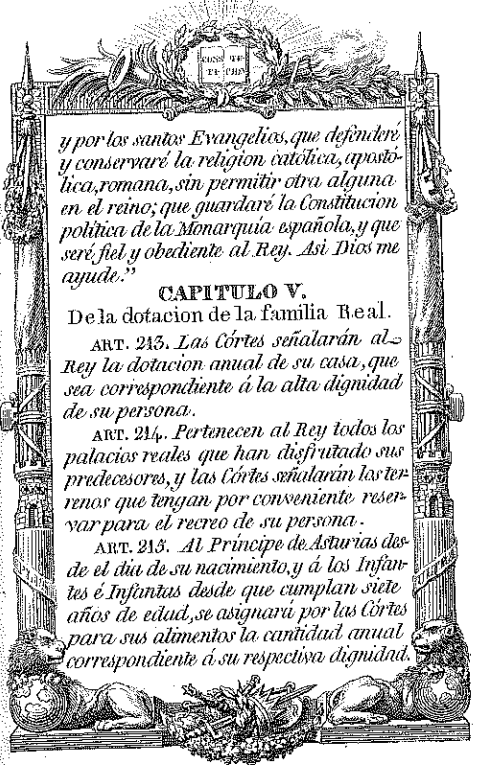 CONS TI-
TU- CION
y por los santos Evangelios, que defenderé
y conservaré la religion católica, apostó-
lica, romana, sin permitir otra alguna
en el reino; que guardaré la Constitucion
política de la Monarquía española, y que
seré fiel y obediente al Rey. Asi Dios me
ayude."
CAPITULO V.
De la dotacion de la familia Real.
ART. 213. Las Córtes señalarán al
Rey la dotacion anual de su casa, que
sea correspondiente á la alta dignidad
de su persona.
ART. 214. Pertenecen al Rey todos los
palacios reales que han disfrutado sus
predecesores, y las Córtes señalarán los ter-
renos que tengan por conveniente reser-
var para el recreo de su persona.
ART. 215. Al Príncipe de Asturias des-
de el dia de su nacimiento, y á los Infan-
tes é Infantas desde que cumplan siete
años de edad, se asignará por las Córtes
para sus alimentos la cantidad anual
correspondiente á su respectiva dignidad.